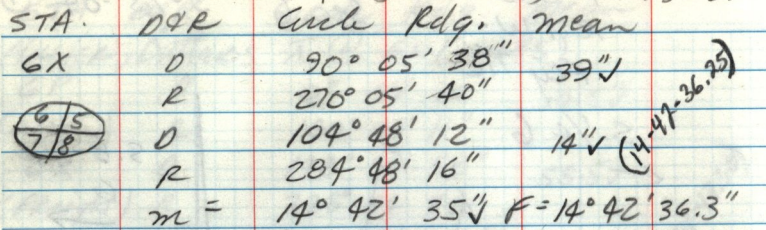 STA. D&R Circle Rdg. Mean
6X D 90° 05' 38" 39"✓
R 270° 05' 40"
6 5
7 8
D 104° 48' 12" 14"✓
(14-42-36.25)
R 284° 48' 16"
m = 14° 42' 35"✓ F = 14° 42' 36.3"